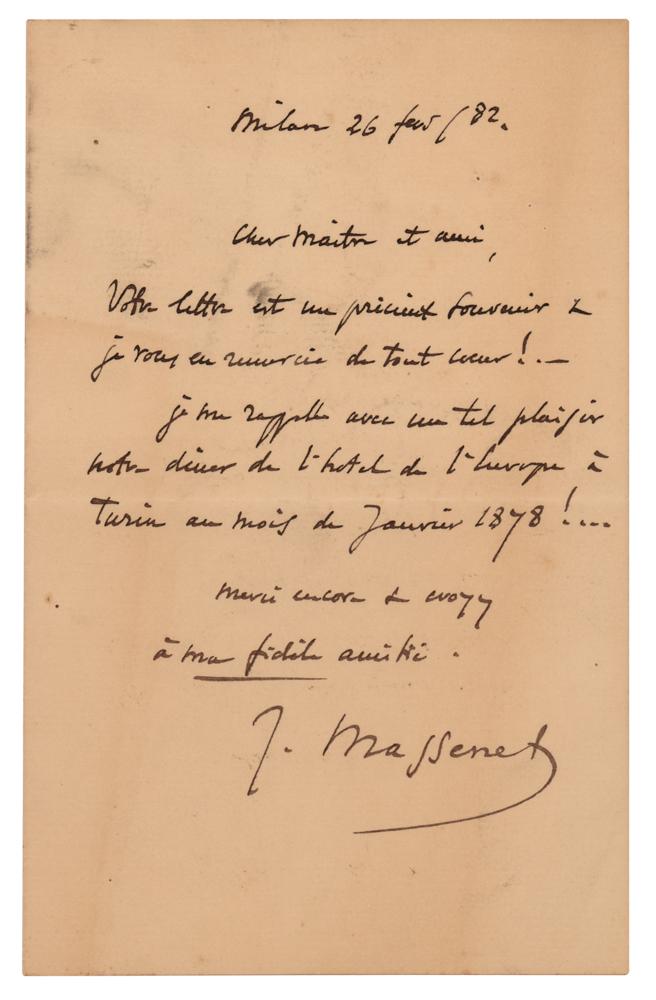 Milan 26 fev / 82.
Cher Maître et ami,
Votre lettre est un précieux souvenir &
je vous en remercie de tout coeur ! . —
je me rappelle avec un tel plaisir
notre diner de l'hotel de l'Europe à
Turin au mois de Janvier 1878 ! ...
merci encore & croyez
à ma fidèle amitié .
J. Massenet